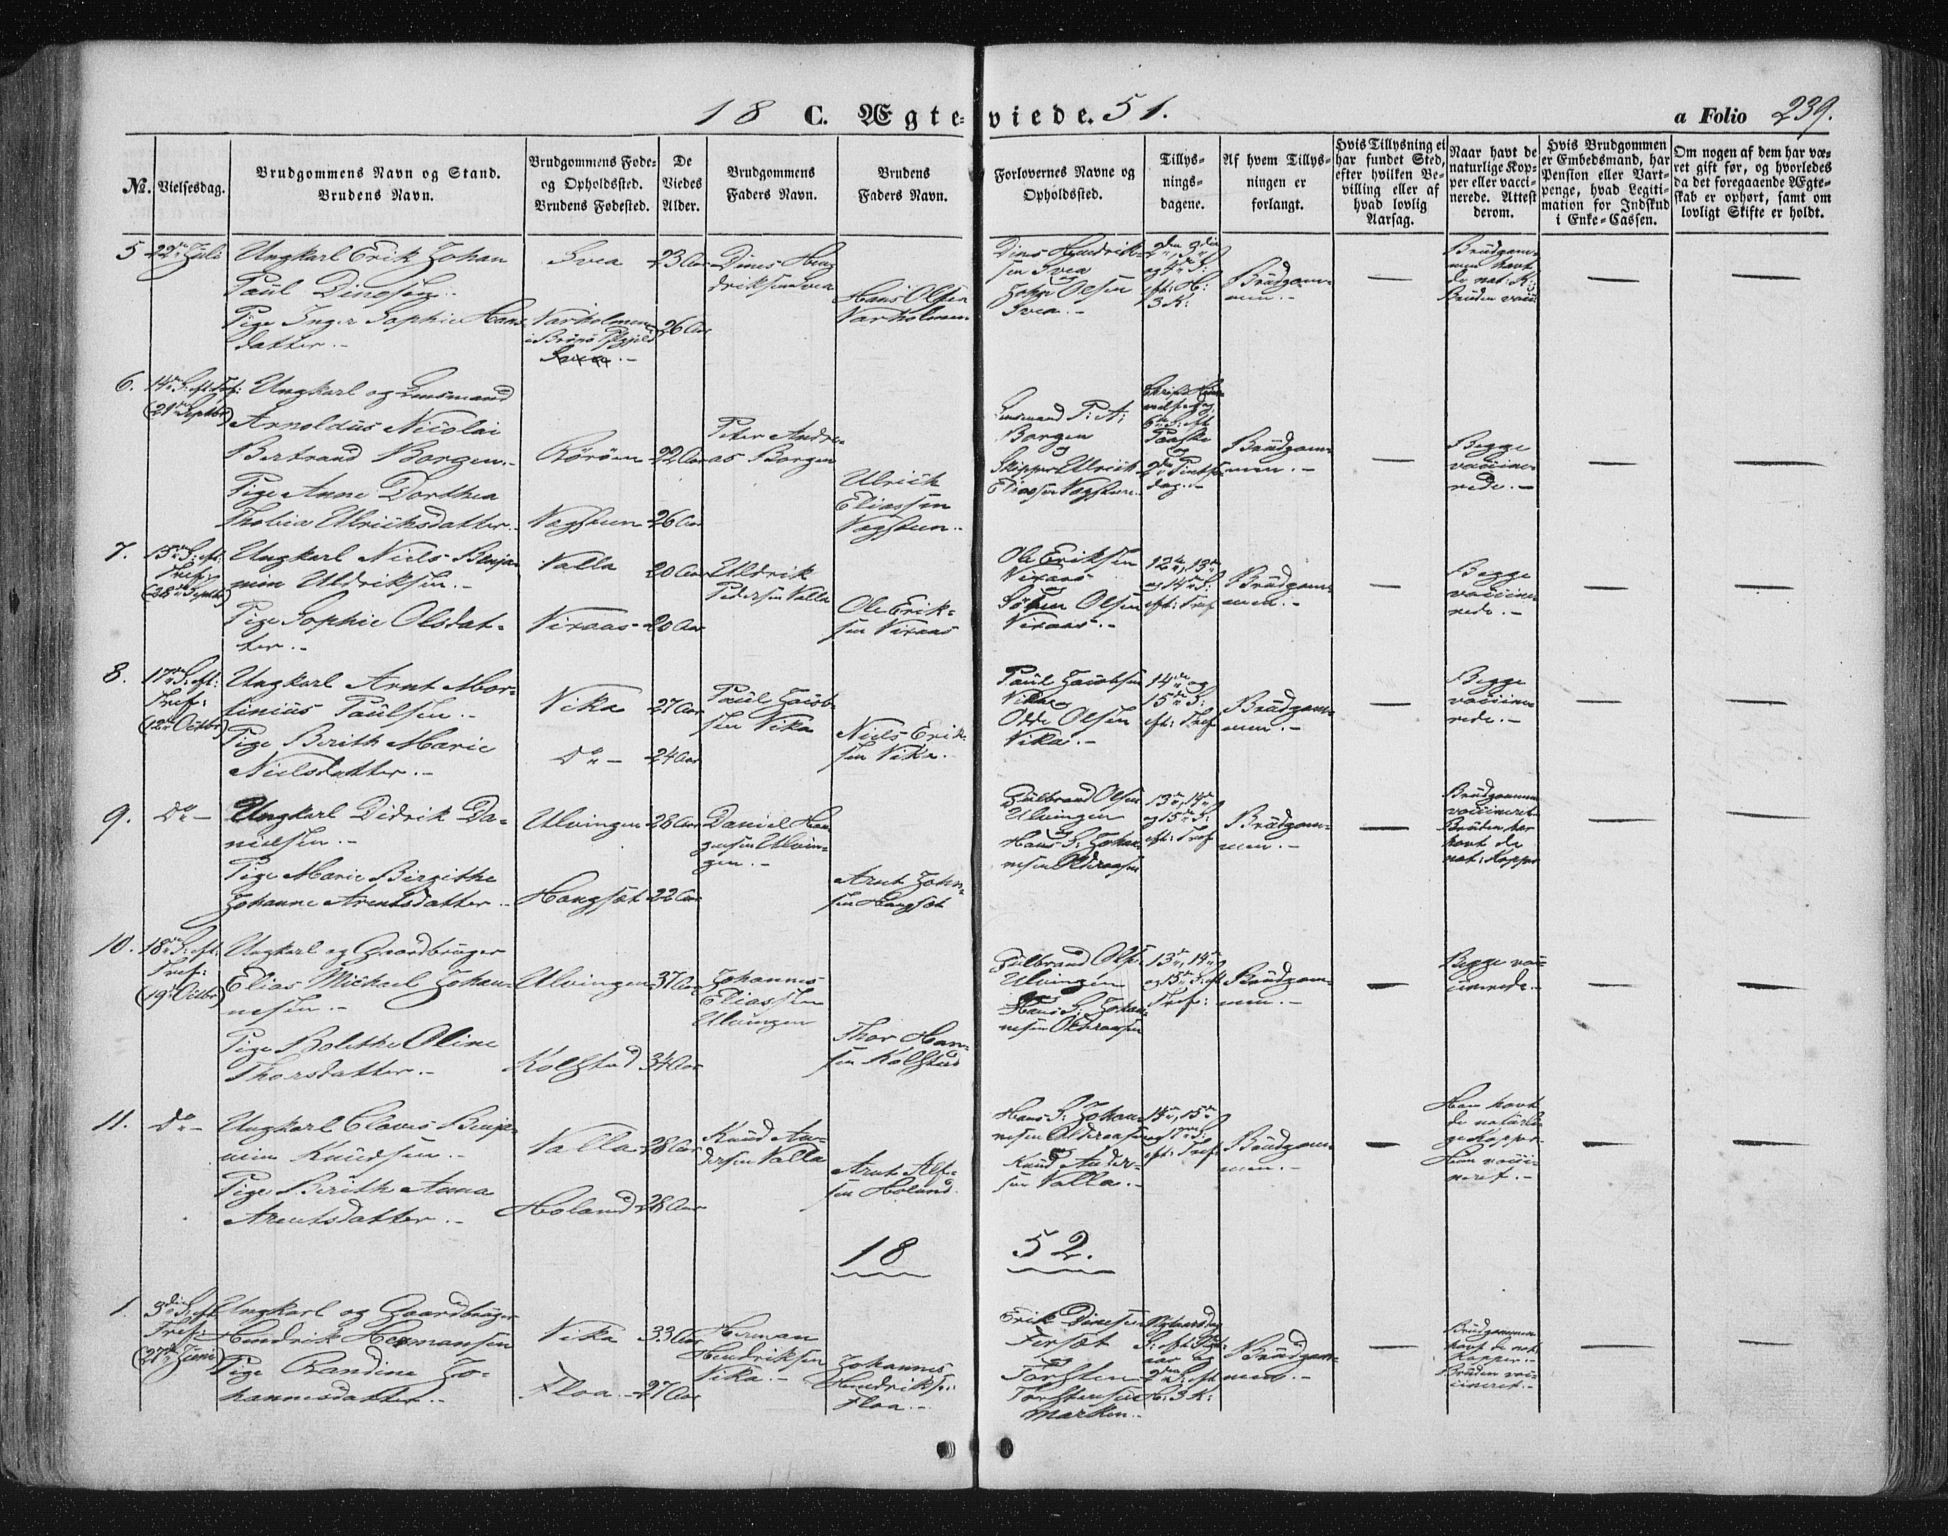 18 C. Ægte- viede. 51.
a Folio 239.
No.
Vielsesdag.
Brudgommens Navn og Stand.
Brudens Navn.
Brudgommens Føde-
og Opholdssted.
Brudens Fødested.
De
Viedes
Alder.
Brudgommens
Faders Navn.
Brudens
Faders Navn.
Forlovernes Navne og
Opholdssted.
Tillys-
nings-
dagene.
Af hvem Tillys-
ningen er
forlangt.
Hvis Tillysning ei
har fundet Sted,
efter hvilken Be-
villing eller af
hvad lovlig
Aarsag.
Naar havt de
naturlige Kop-
per eller vacci-
nerede. Attest
derom.
Hvis Brudgommen
er Embedsmand, har
Pension eller Vart-
penge, hvad Legiti-
mation for Indskud
i Enke-Cassen.
Om nogen af dem har væ-
ret gift før, og hvorledes
da det foregaaende Ægte-
skab er ophørt, samt om
lovligt Skifte er holdt.
5
22de Juli
Ungkarl Erik Johan
Paul Dinesen.
Pige Inger Sophie Hans-
datter.
Svea
Varholmen
i Brønø
23 Aar
26 Aar
Dines Hen-
driksen Svea
Hans Olsen
Varholmen
Dines Hendrik-
sen Svea
Olsen
Svea.
3 K:
Brudgom-
men.
Brudgom-
men havt
de nat: K:
Bruden vacci
6.
14de S. eft. Tref:
(21de Septbr)
Ungkarl og Lensmand
Arnoldus Nicolai
Bertrand Borgen.
Pige Anne Dorthea
Thobia Ulrichsdatter.
Rørøen
Vogstuen
22 Aar
26 Aar
Peter Andre-
as Borgen
Ulrich
Eliassen
Vogstuen.
Lensmand P: A:
Borgen
og
Skipper Ulrich
Eliassen Vogstuen.
Paaske
og
2den Pintse
dag.
Brudgom-
men.
Begge
vaccine-
rede.
7.
15de S. eft:
Tref:
(28de Septbr)
Ungkarl Niels Benja-
min Uldriksen.
Pige Sophie Olsdat-
ter.
Valla
Viraas
20 Aar
20 Aar
Uldrik
Pedersen Valla
Ole Erik-
sen Viraas
Ole Eriksen
Viraas
Søren Olsen
Viraas.
12te, 13de
og 14de S.
eft: Tref
Brudgom-
men.
Begge
vaccine-
rede.
8.
17de S. eft:
Tref:
(12te Octbr)
Ungkarl Arnt Mor-
tinius Paulsen.
Pige Berith Marie
Nielsdatter.
Vika
Do
27 Aar
24 Aar
Paul Jacob-
sen Vika
Niels Erik-
sen Vika.
Paul Jacobsen
Vika og
Odde Olsen
Vika.
14de og
15de S:
eft: Tref
Brudgom-
men.
Begge
vaccine-
rede.
9.
Do
Ungkarl Didrik Da-
nielsen.
Pige Marie Birgithe
Johanne Arentsdatter.
Ulvingen
Hongset
28 Aar
22 Aar
Daniel Han-
sen Ulvin-
gen.
Arnt John-
sen Hongset
Gulbrand Olsen
Ulvingen
og
Hans S: Johan-
nesen
13de, 14de
og 15de S:
eft: Tref
Brudgom-
men.
Brudgommen
vaccineret
Bruden har
havt de
nat: Kopper
10.
18de S: eft.
Tref:
(19de Octbr)
Ungkarl og Gaardbruger
Elias Michael Johan-
nesen.
Pige Bolethe Oline
Thorsdatter.
Ulvingen
Kolstad
37 Aar
34 Aar
Johannes
Eliassen
Ulvingen
Thor Han-
sen Kolstad
Gulbrand Ols:
Ulvingen
og
Hans S: Johan-
nesen
13de, 14de
og 15de S. eft
Tref:
Brudgom-
men.
Begge vac-
cinerede.
11.
Do
Ungkarl Claves Benja-
min Knudsen.
Pige Berith Anna
Arentsdatter.
Valla
Holand
28 Aar
28 Aar
Knud An-
dersen Valla
Arnt Alf-
sen Holand.
Hans S: Johan-
nesen
og
Knud Ander-
sen Valla.
14de, 15de
og 17de S.
eft: Tref
Brudgom-
men.
Han havt
de naturli-
ge Kopper
Hun vacci-
neret.
18 52.
1.
3die S. eft
Tref:
(27de Juni)
Ungkarl og Gaardbruger
Hendrik Hermansen
Pige Randine Jo-
hannesdatter.
Vika
Floa.
33 Aar
27 Aar
Herman
Hendriksen
Vika.
Johannes
Hendriks:
Floa.
Erik Dinesen
Forset
og
Torsten
Torstensen
Marken.
Nytaarsdag
S: eft: Nyt-
aar og
2den S. eft
H: 3 K:
Brudgom-
men.
Brudgommen
havt de nat
Kopper.
Bruden vac-
cineret.